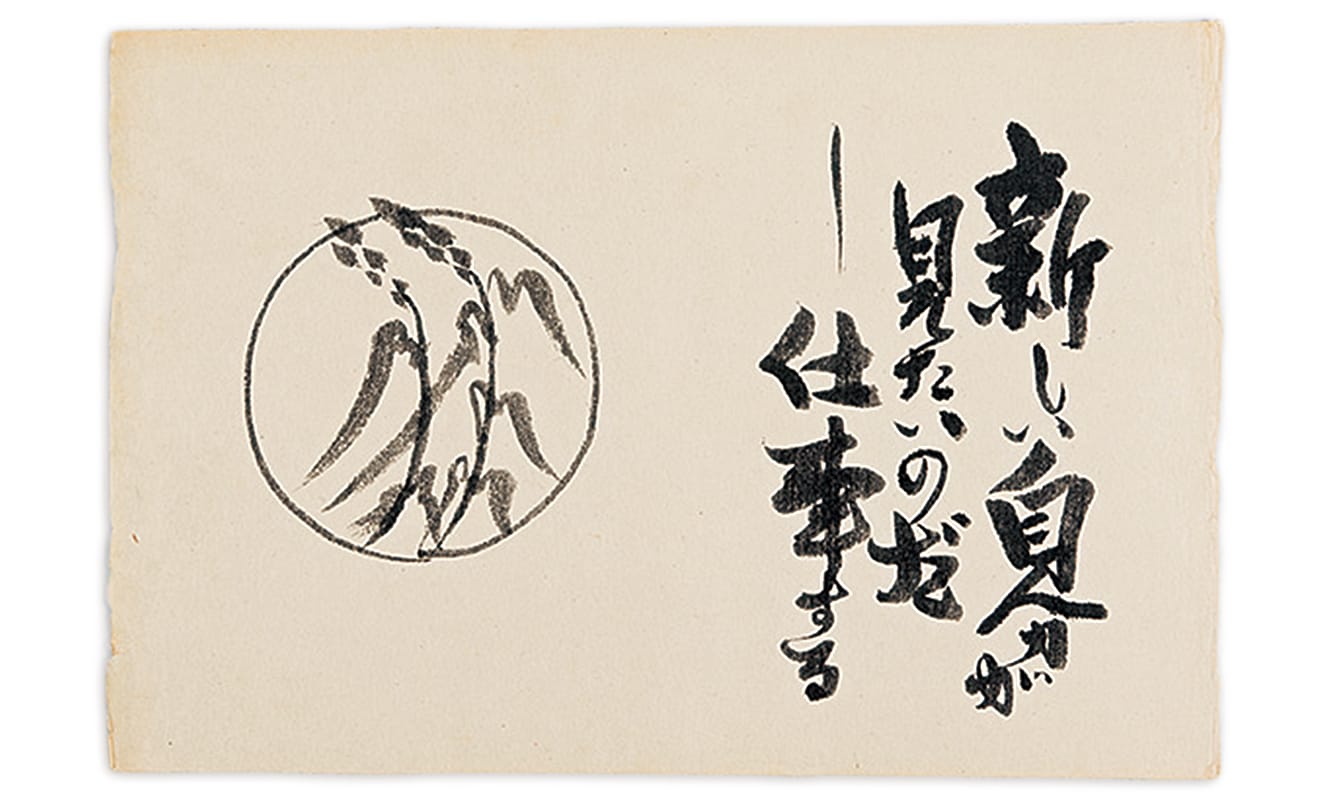 新しい自分が
見たいのだ
―仕事する